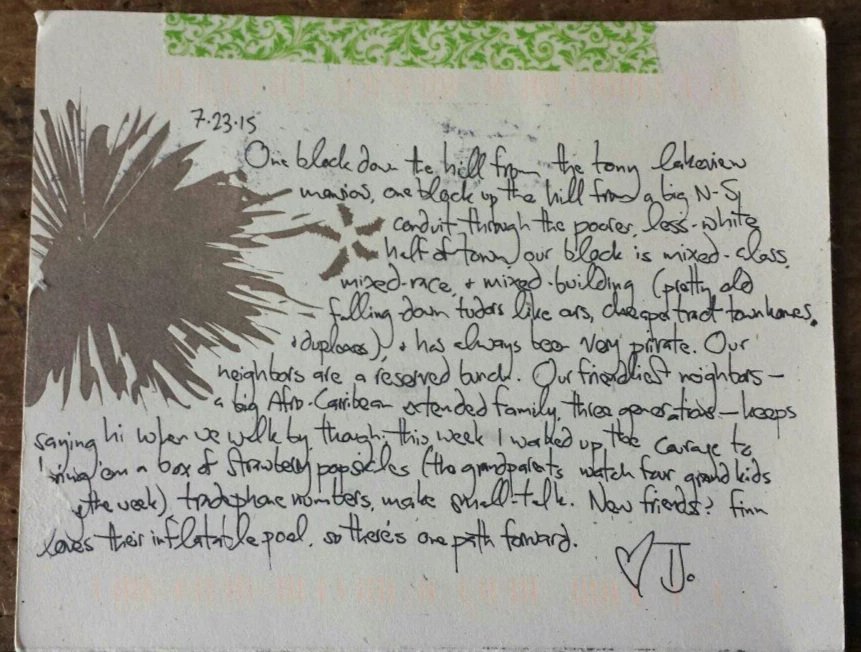 7.23.15
One block down the hill from the tony lakeview
mansions, one block up the hill from a big N-S
conduit through the poorer, less-white
half of town, our block is mixed-class,
mixed-race, + mixed-building (pretty old
falling-down tudors like ours, cheaper tract townhomes,
+ duplexes), + has always been very private. Our
neighbors are a reserved bunch. Our friendliest neighbors—
a big Afro-Carribean extended family, three generations—keeps
saying hi when we walk by though; this week I worked up the courage to
bring 'em a box of strawberry popsicles (the grandparents watch four grand kids
the week), trade phone numbers, make small-talk. New friends? Finn
loves their inflatable pool, so there's one path forward.
♡ D.